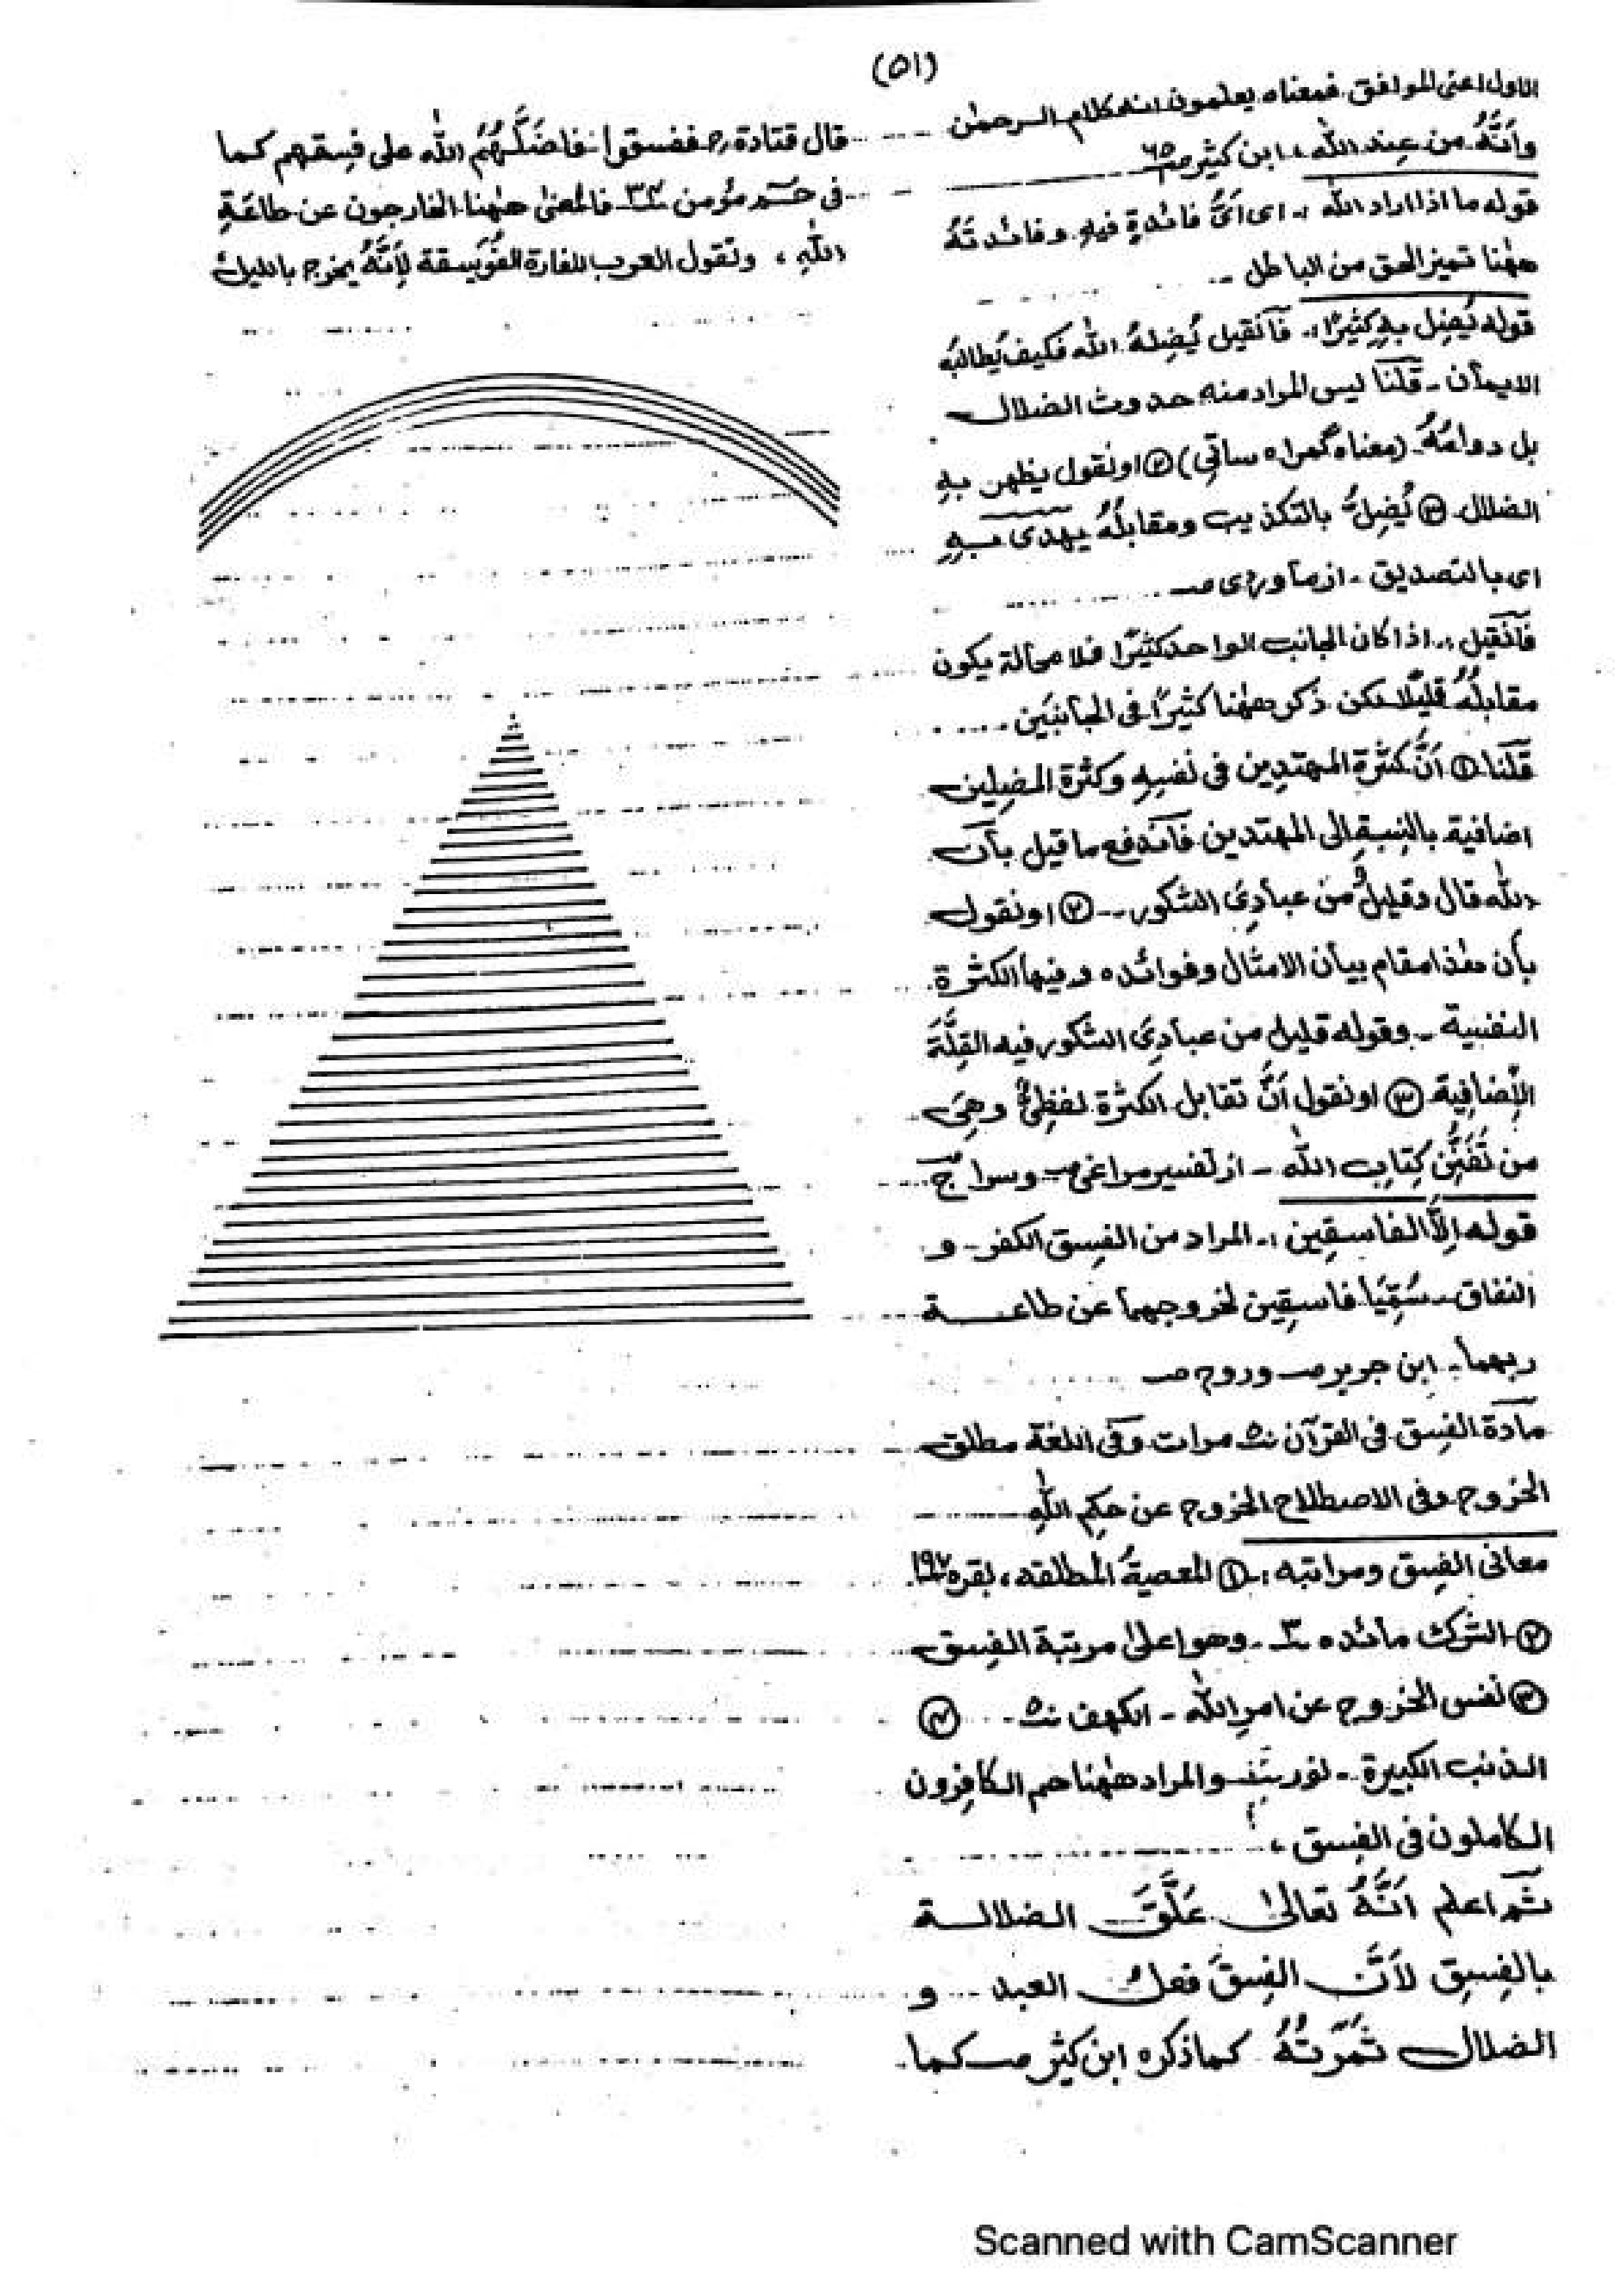 (٥١)
الاول اعنى الموافق فمعناه يعلمون انه كلام الرحمٰن
وَاَنَّهُ من عِند الله ،، ابن كثير صـ ٦٥
قوله ما اذا اراد الله :۔ اى اَىُّ فائدةٍ فيهِ وفائدتُهُ
هٰهنا تميز الحق من الباطل ۔
قوله يُضِل بهٖ كثيرًا:۔ فَاَنْقيل يُضِلهُ الله فكيف يُطالبُهُ
الايمان ۔ قلنا ليس المراد منه حدوث الضلال
بل دوامُهُ ۔ (معناه گمراه ساتي) ② او نقول يظهر بهٖ
الضلال ③ يُضِلُّ بالتكذيب ومقابلُهُ يهدى بهٖ
اى بالتصديق ۔ از ماوردى صـ
فَاَنْقيل :۔ اذا كان الجانب الواحد كثيرًا فلا محالة يكون
مقابلُهُ قليلًا لكن ذكر هٰهنا كثيرًا فى الجانبَين
قلنا ① اَنَّ كثرة المهتدِين فى نفسِهٖ وكثرة المضِلِين
اضافية بالنِسبةِ الى المهتدين فَاَنْدفع ما قيل بأن
الله قال وقليلٌ من عبادِىَ الشكور ۔۔ ② او نقول
بأن هٰذا مقام بيان الامثال وفوائده وفيها الكثرة
النفسية ۔ وقوله قليل من عبادِىَ الشكور فيه القِلَّةَ
الاِضافِية ③ او نقول اَنَّ تقابل الكثرة لفظِىٌّ وهِىَ
من تَفَنُّنِ كِتابِ الله ۔ از تفسير مراغى صـ وسراج صـ
قوله اِلَّا الفاسقِين :۔ المراد من الفِسق الكفر و
النفاق ۔ سُمِّيَا فاسِقِين لخروجهما عن طاعة
ربهما ۔ ابن جرير صـ وروح صـ
مادة الفِسق فى القرآن مرات وفى اللغة مطلق
الخروج وفى الاصطلاح الخروج عن حكم اللهِ
معانى الفِسق ومراتبه :۔ ① المعصيةُ المطلقه ، بقره ١٩٧
② الشرك مائده ٣ ۔ وهو اعلىٰ مرتبة الفِسق
③ نفس الخروج عن امرِ الله ۔ الكهف ④
الذنب الكبيرة ۔ نور والمراد هٰهنا هم الكافرون
الكاملون فى الفِسق ،
ثم اعلم اَنَّهُ تعالىٰ عَلَّقَ الضلالة
بالفِسِق لاَنَّ الفِسقَ فعلُ العبد و
الضلال ثَمَرَتُهُ كما ذكره ابن كثير صـ كما
قال قتادة رح ففسقوا فاضَلَّهُمُ الله على فِسقهم كما
فى حٰـم مؤمن ٣٤ فالمعنىٰ هٰهنا الخارجون عن طاعَةِ
اللهِ ، وتقول العرب للفارة الفُوَيسقة لِاَنَّهُ يخرج بالليل
Scanned with CamScanner